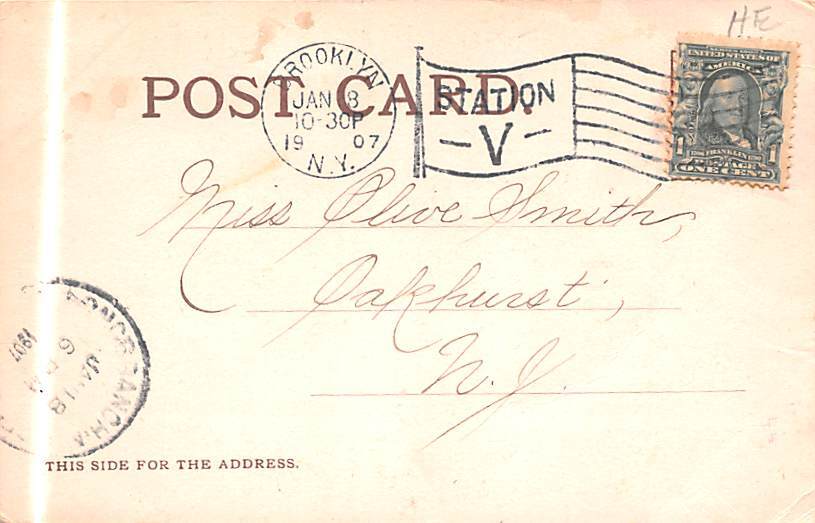 H.E
POST CARD.
BROOKLYN
JAN 8
10-30P
19 07
N.Y.
STATION
-V-
UNITED STATES OF
AMERICA
FRANKLIN
1 1
ONE CENT
Miss Olive Smith,
Oakhurst,
N. J.
1907
6 P
JAN 8
BRANCH
THIS SIDE FOR THE ADDRESS.